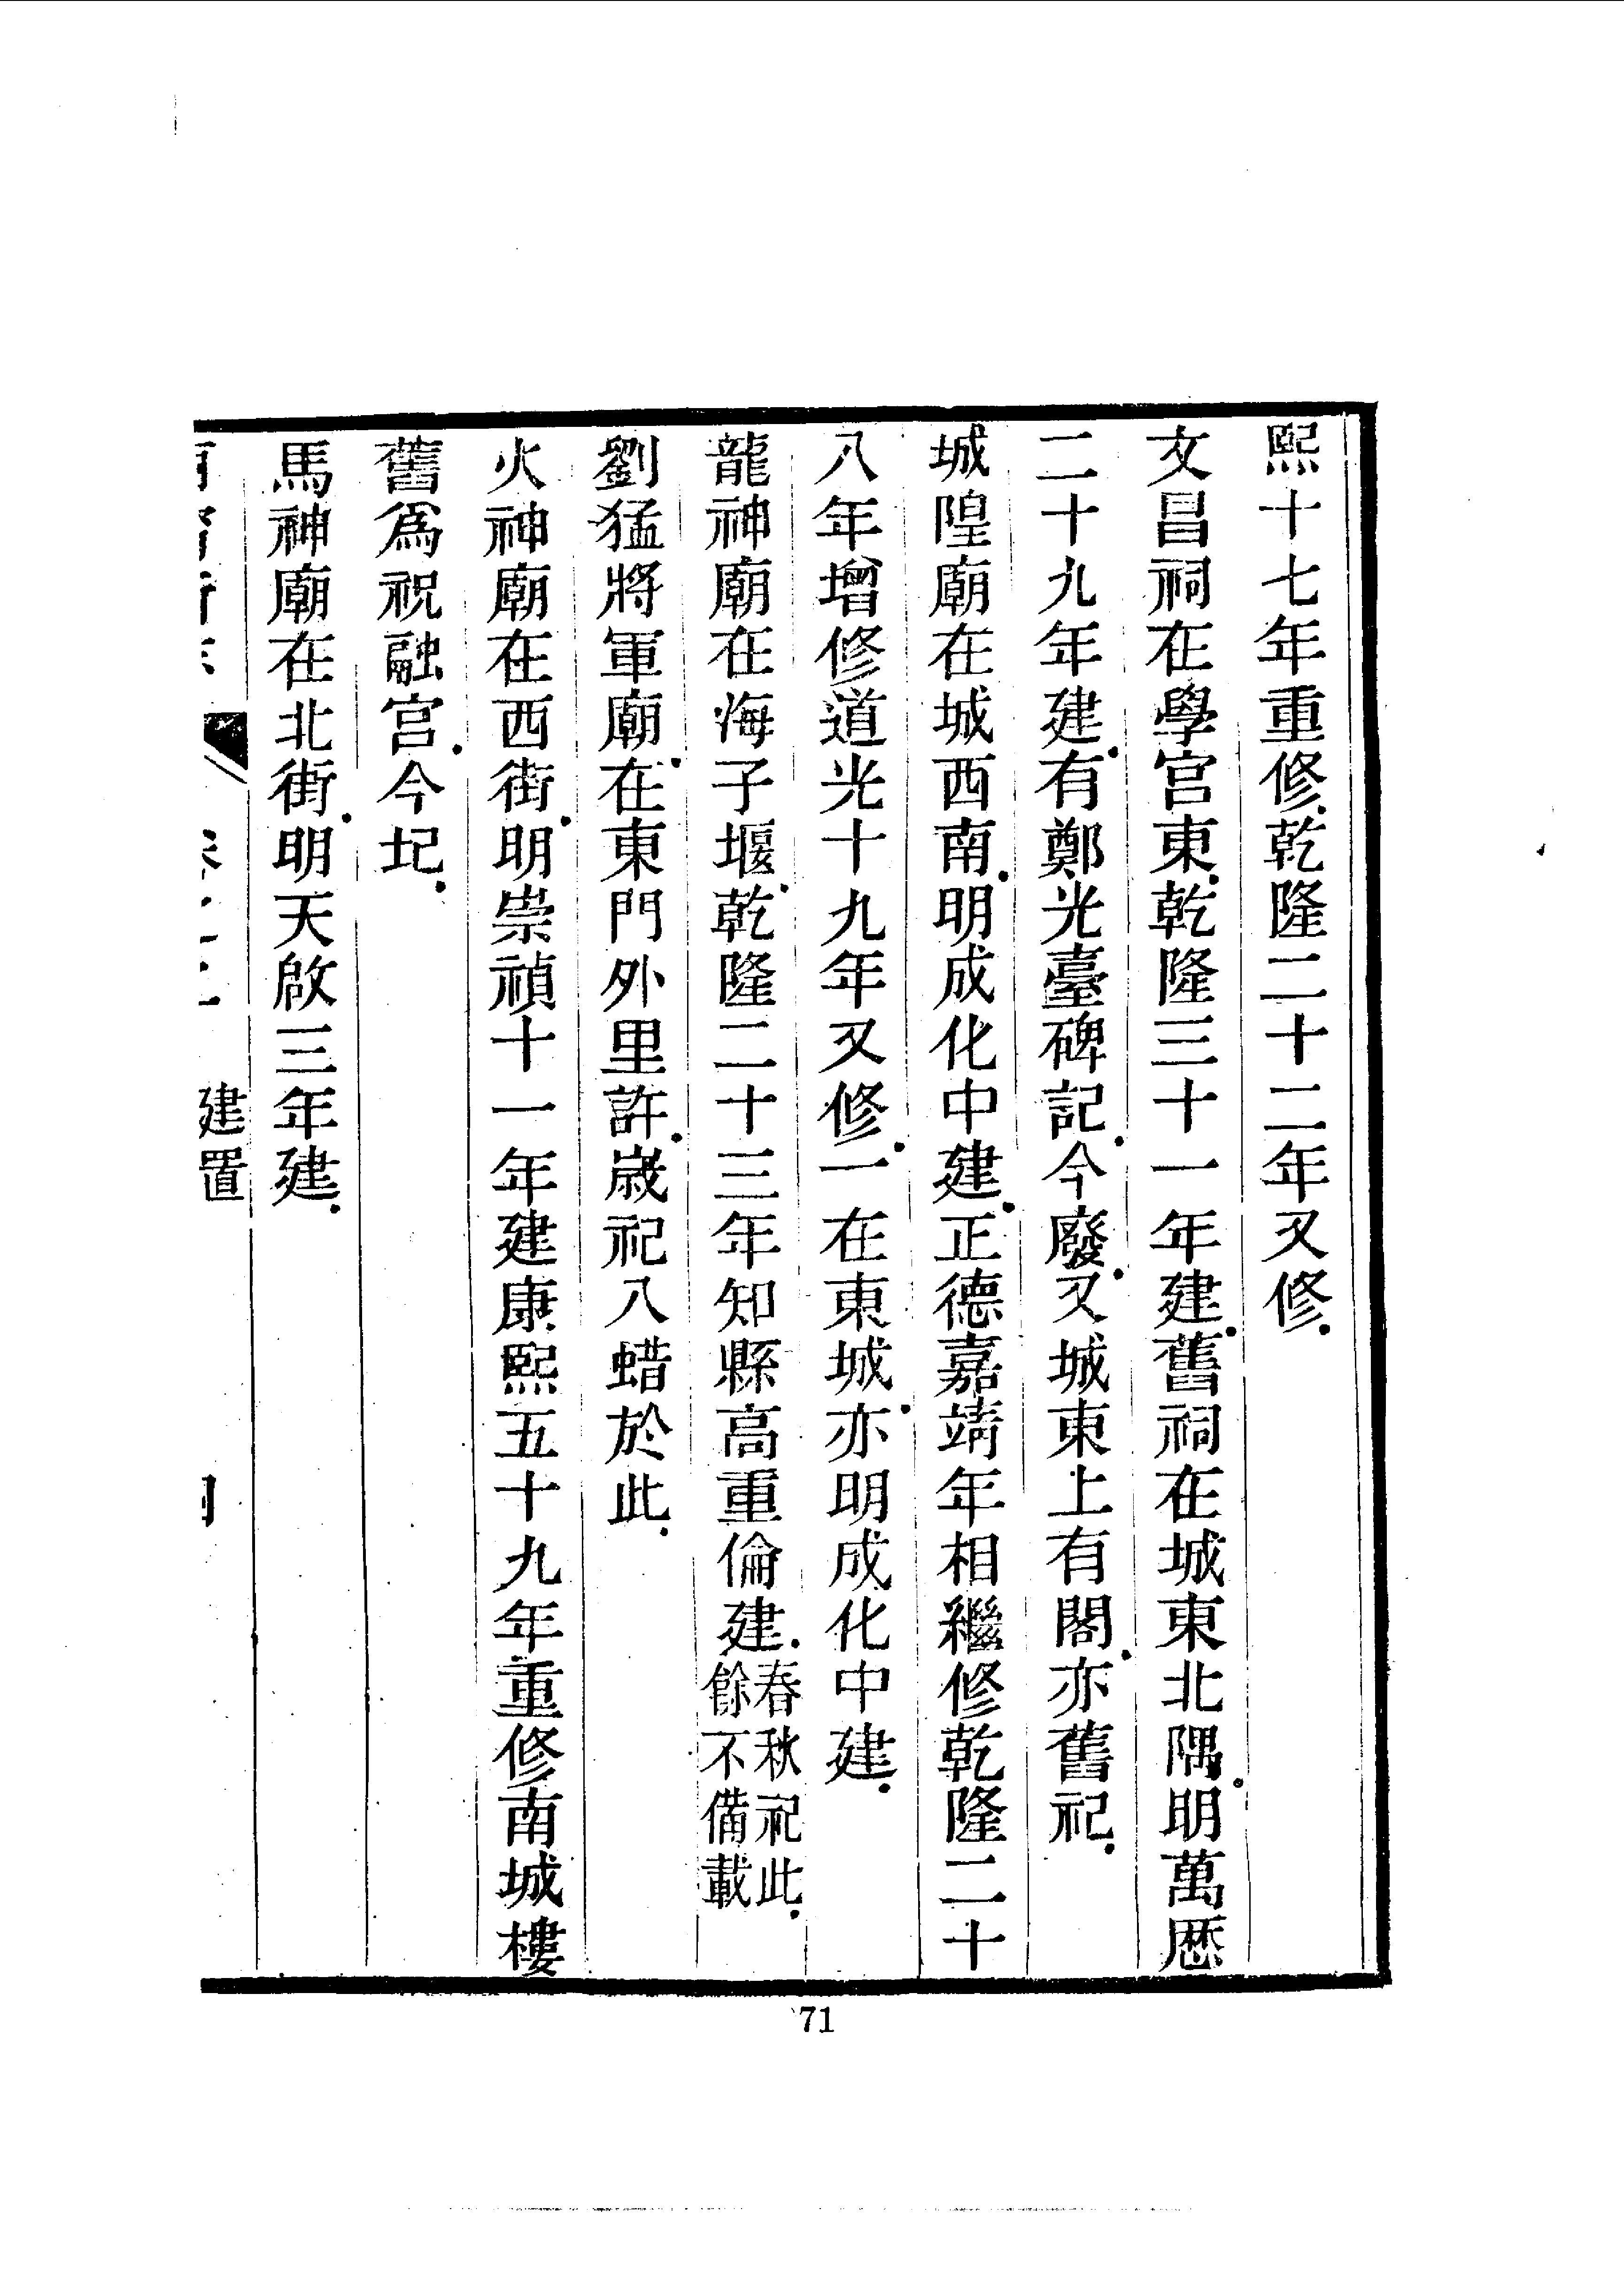 熙十七年重修.乾隆二十二年又修.
文昌祠在學宮東.乾隆三十一年建.舊祠在城東北隅.明萬歷
二十九年建.有鄭光臺碑記.今廢.又城東上有閣.亦舊祀.
城隍廟在城西南.明成化中建.正德嘉靖年相繼修乾隆二十
八年增修道光十九年又修.一在東城.亦明成化中建.
龍神廟在海子堰.乾隆二十三年知縣高重倫建.春秋祀此.餘不備載
劉猛將軍廟.在東門外里許.歲祀八蜡於此.
火神廟在西街.明崇禎十一年建康熙五十九年重修南城樓
舊爲祝融宮.今圮.
馬神廟在北街.明天啟三年建.
建置
71